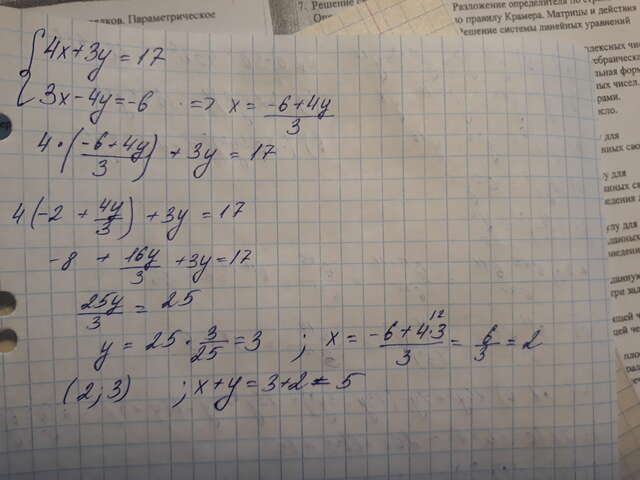 { 4x + 3y = 17
3x - 4y = -6 => x = (-6 + 4y)/3
4 · ((-6 + 4y)/3) + 3y = 17
4(-2 + 4y/3) + 3y = 17
-8 + 16y/3 + 3y = 17
25y/3 = 25
y = 25 · 3/25 = 3 ; x = (-6 + 4·3)/3 = 6/3 = 2
12
(2; 3) ; x + y = 3 + 2 = 5
Параметрическое
7. Решение
Разложение определителя по
по правилу Крамера. Матрицы и действия
Решение системы линейных уравнений